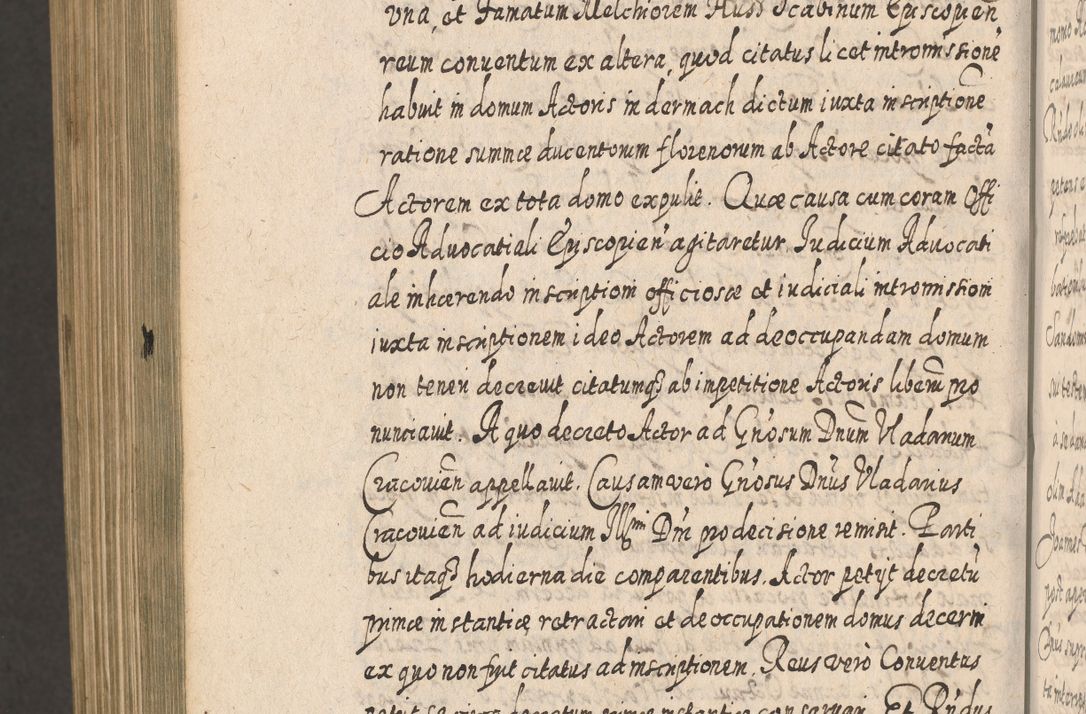 vna, et Famatum Melchiorem Huss Scabinum Episcopien
reum conuentum ex altera, quod citatus licet intromissionē
habuit in domum Actoris in dermach dictum iuxta inscriptionē
ratione summæ ducentorum florenorum ab Actore citato factā
Actorem ex tota domo expulit. Quæ causa cum coram Offi
cio Aduocatiali Episcopien̄ agitaretur Iudicium Aduocati
ale inhærendo inscriptioni officiosæ et iudiciali intromissioni
iuxta inscriptionem ideo Actorem ad deoccupandam domum
non teneri decreuit citatumq3 ab impetitione Actoris liberū pro
nunciauit. A quo decreto Actor ad Gn̄osum Dnūm Vladarium
Cracouiēn appellauit. Causam verò Gn̄osus Dn̄us Vladarius
Cracouiēn ad iudicium Illmi Dn̄i pro decisione remisit. Parti
bus itaq3 hodierna die comparentibus. Actor petijt decretū
primæ instantiæ retractari et deoccupationem domus decerni
ex quo non fuit citatus ad inscriptionem. Reus verò Conuentus
petijt se iuxta decretum primæ instantiæ conseruari. Et Rn̄dus